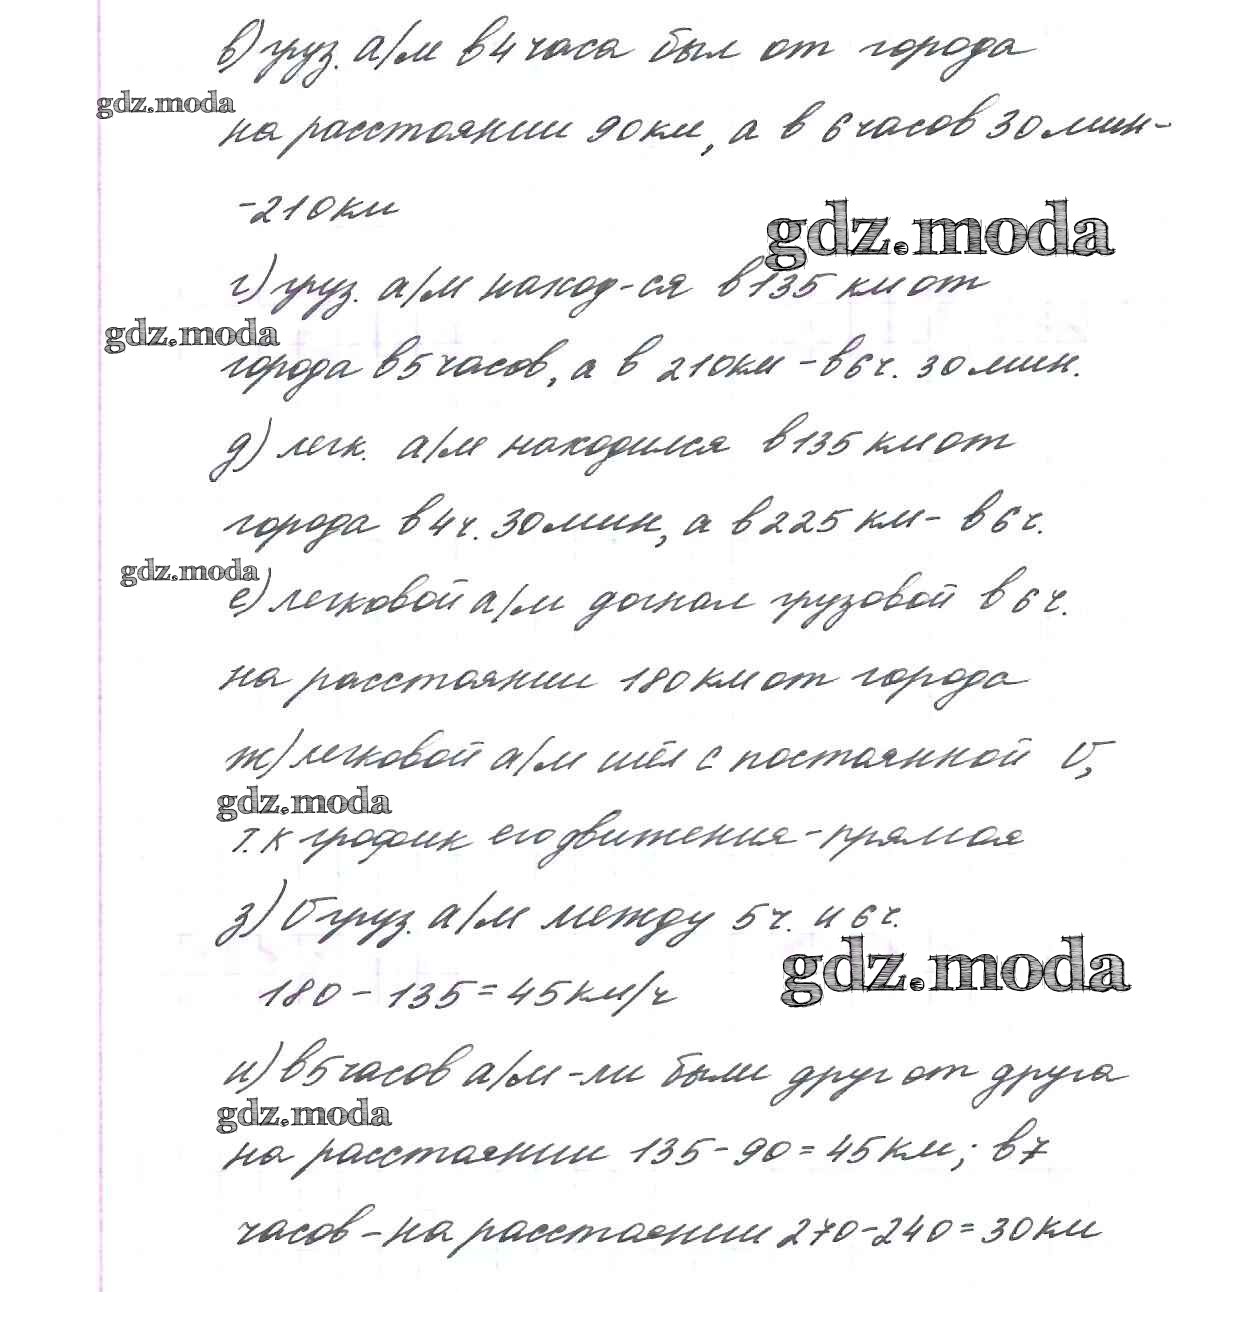 в) груз. а/м в 4 часа был от города
gdz.moda
на расстоянии 90 км, а в 6 часов 30 мин-
-210 км
gdz.moda
г) груз. а/м наход-ся в 135 км от
gdz.moda
города в 5 часов, а в 210 км - в 6 ч. 30 мин.
д) легк. а/м находился в 135 км от
города в 4 ч. 30 мин, а в 225 км - в 6 ч.
gdz.moda
е) легковой а/м догнал грузовой в 6 ч.
на расстоянии 180 км от города
ж) легковой а/м шёл с постоянной V,
gdz.moda
т.к график его движения - прямая
з) V груз. а/м между 5 ч. и 6 ч.
gdz.moda
180 - 135 = 45 км/ч
и) в 5 часов а/м-ли были друг от друга
gdz.moda
на расстоянии 135 - 90 = 45 км; в 7
часов - на расстоянии 270 - 240 = 30 км